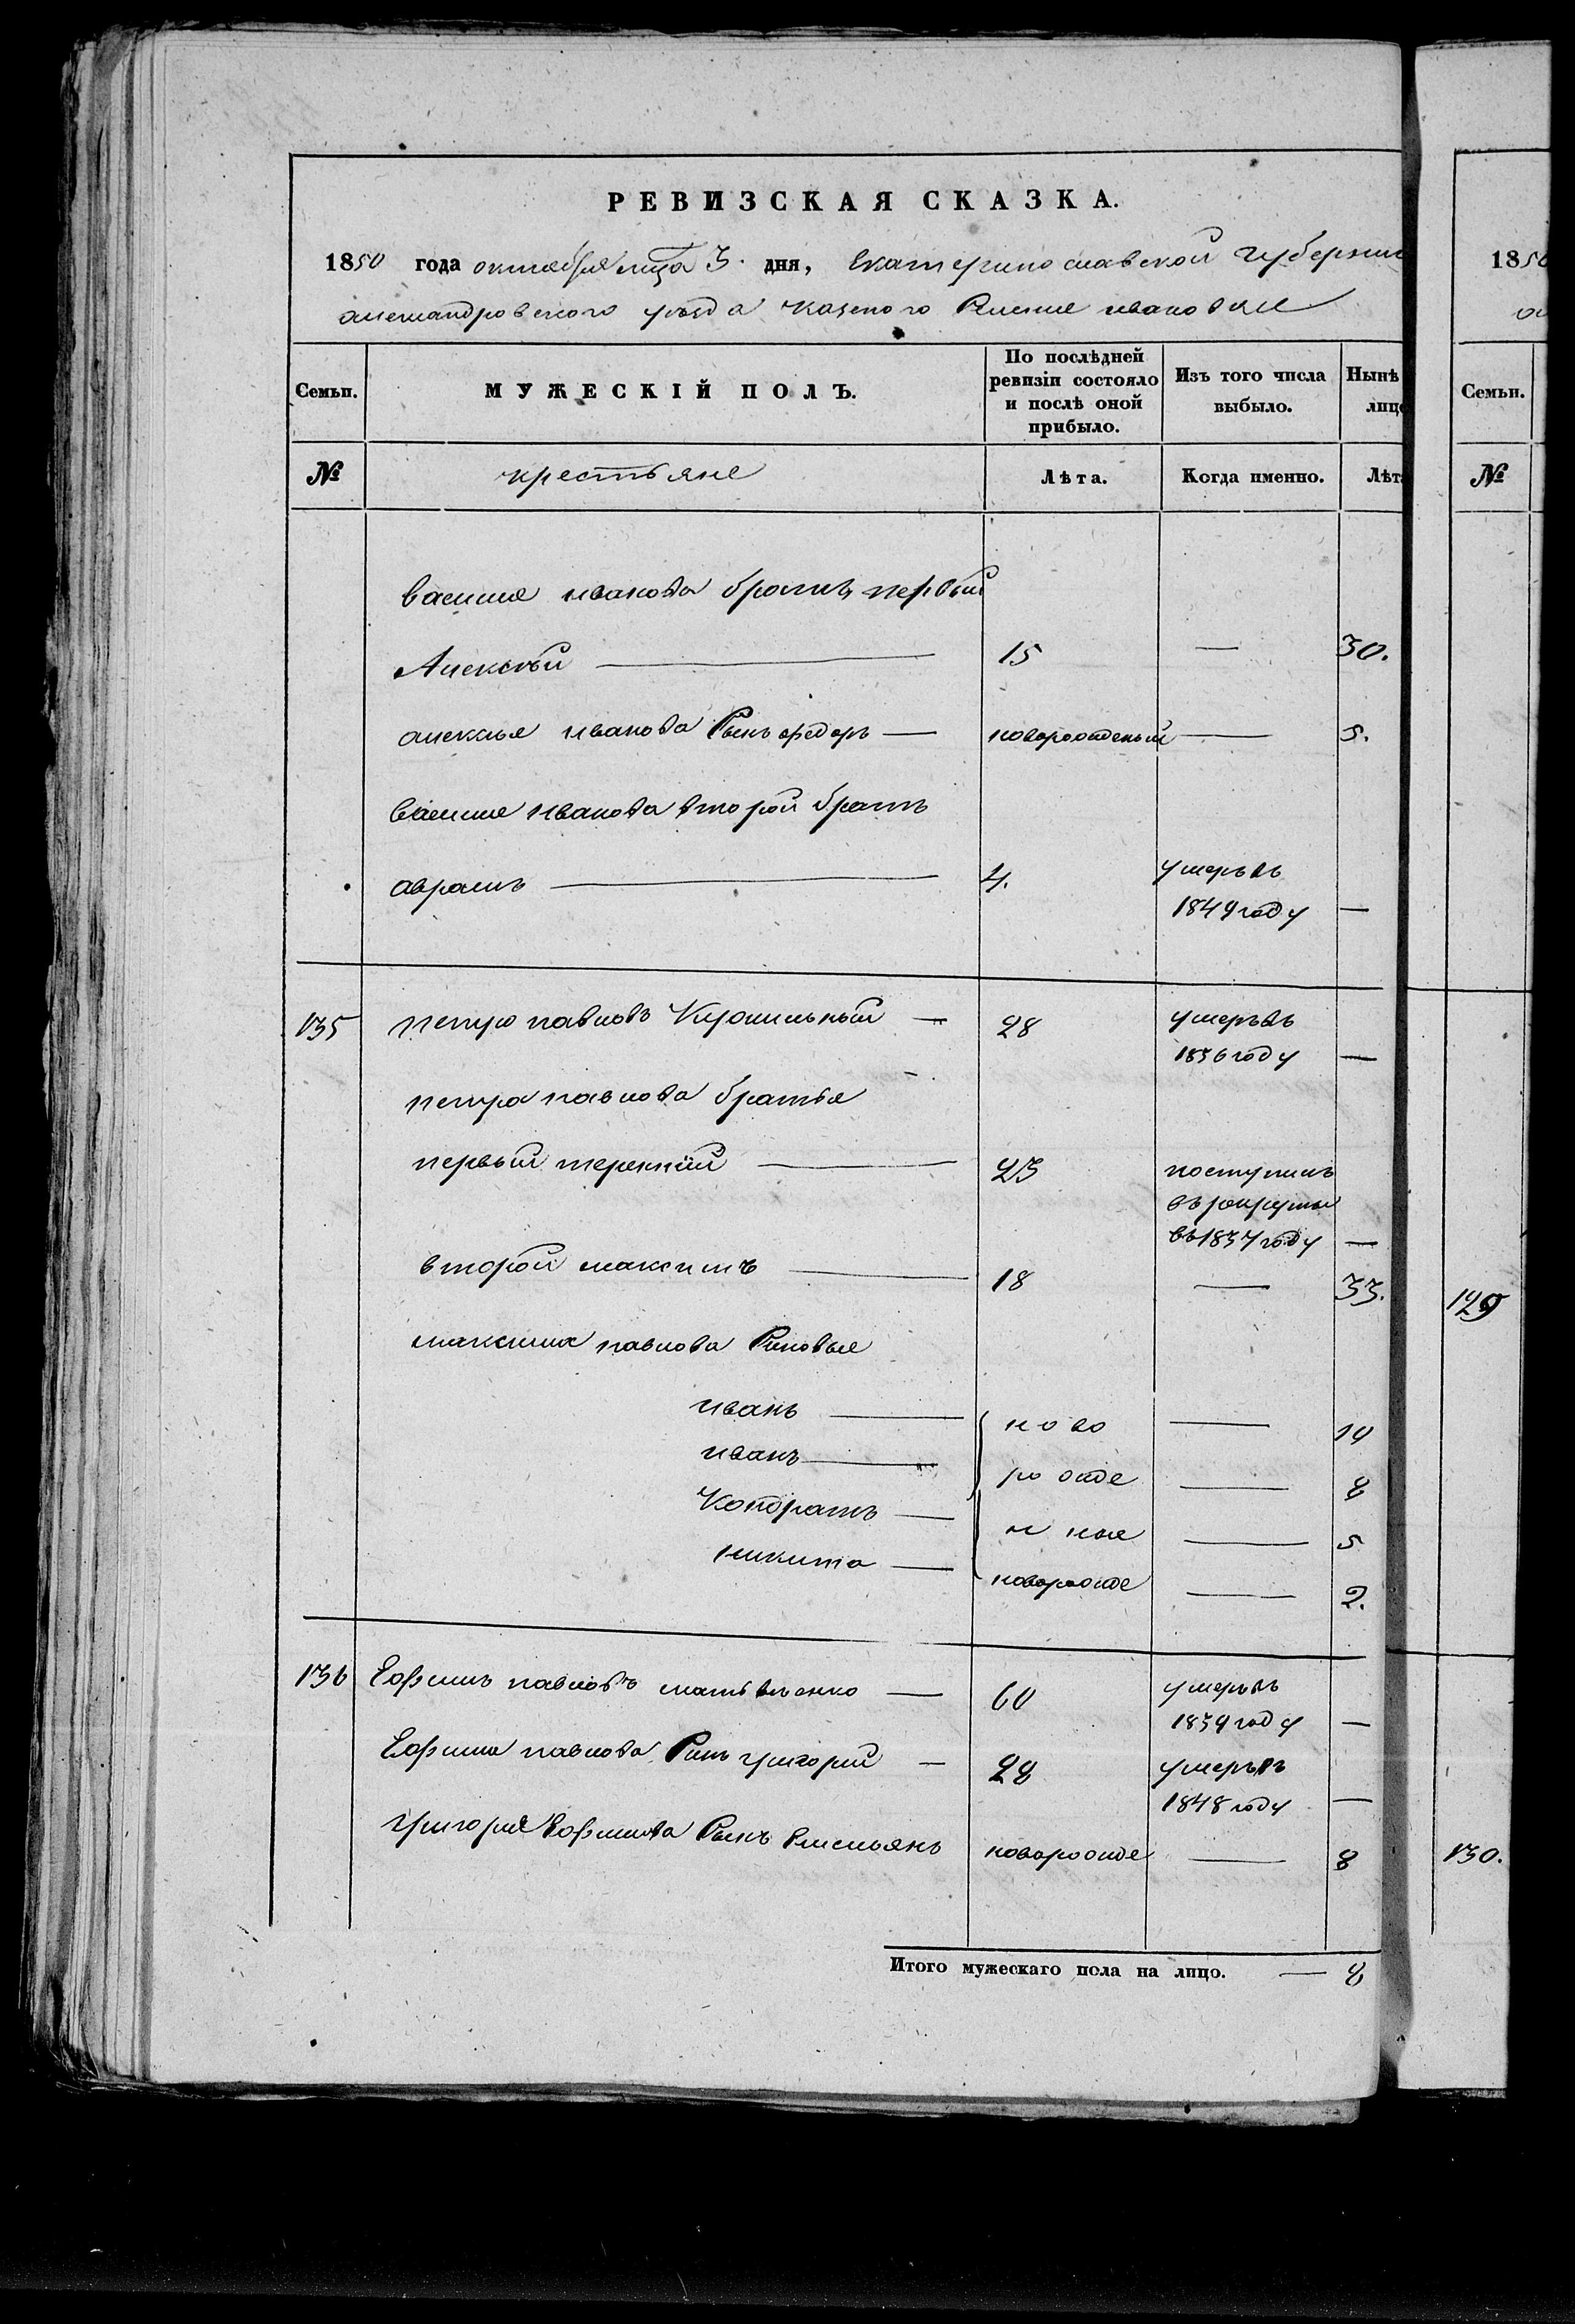 РЕВИЗСКАЯ СКАЗКА.
1850 года октября мца 3 дня, Екатеринославской губернии
александровского уезда казеного Селения ивановки
Семьи. МУЖЕСКІЙ ПОЛЪ. По послѣдней ревизіи состояло и послѣ оной прибыло. Изъ того числа выбыло. Нынѣ лицо
№ крестьяне Лѣта. Когда именно. Лѣта
василия иванова братъ первый
Алексѣй — 15 — 30.
алексея иванова Сынъ федоръ — новорожденый — 5.
василия иванова второй братъ
аврамъ — 4. умеръ въ
1849 году —
135 петро павловъ — 28 умеръ въ
1836 году —
петра павлова братья
первый терентий — 23 поступилъ
въ рекруты
въ 1837 году —
второй максимъ — 18 — 33.
максима павлова Синовья
иванъ — ново — 14
иванъ — рожде — 8
Кондратъ — н ные — 5
никита — новорожде — 2.
136 Ефимъ павловъ матвѣенко — 60 умеръ въ
1839 году —
Ефима павлова Синъ григорий — 28 умеръ въ
1848 году —
григория Ефимова Сынъ Емельянъ новорожде — 8
Итого мужескаго пола на лицо. — 8
1850
Семьи.
№
129
130.